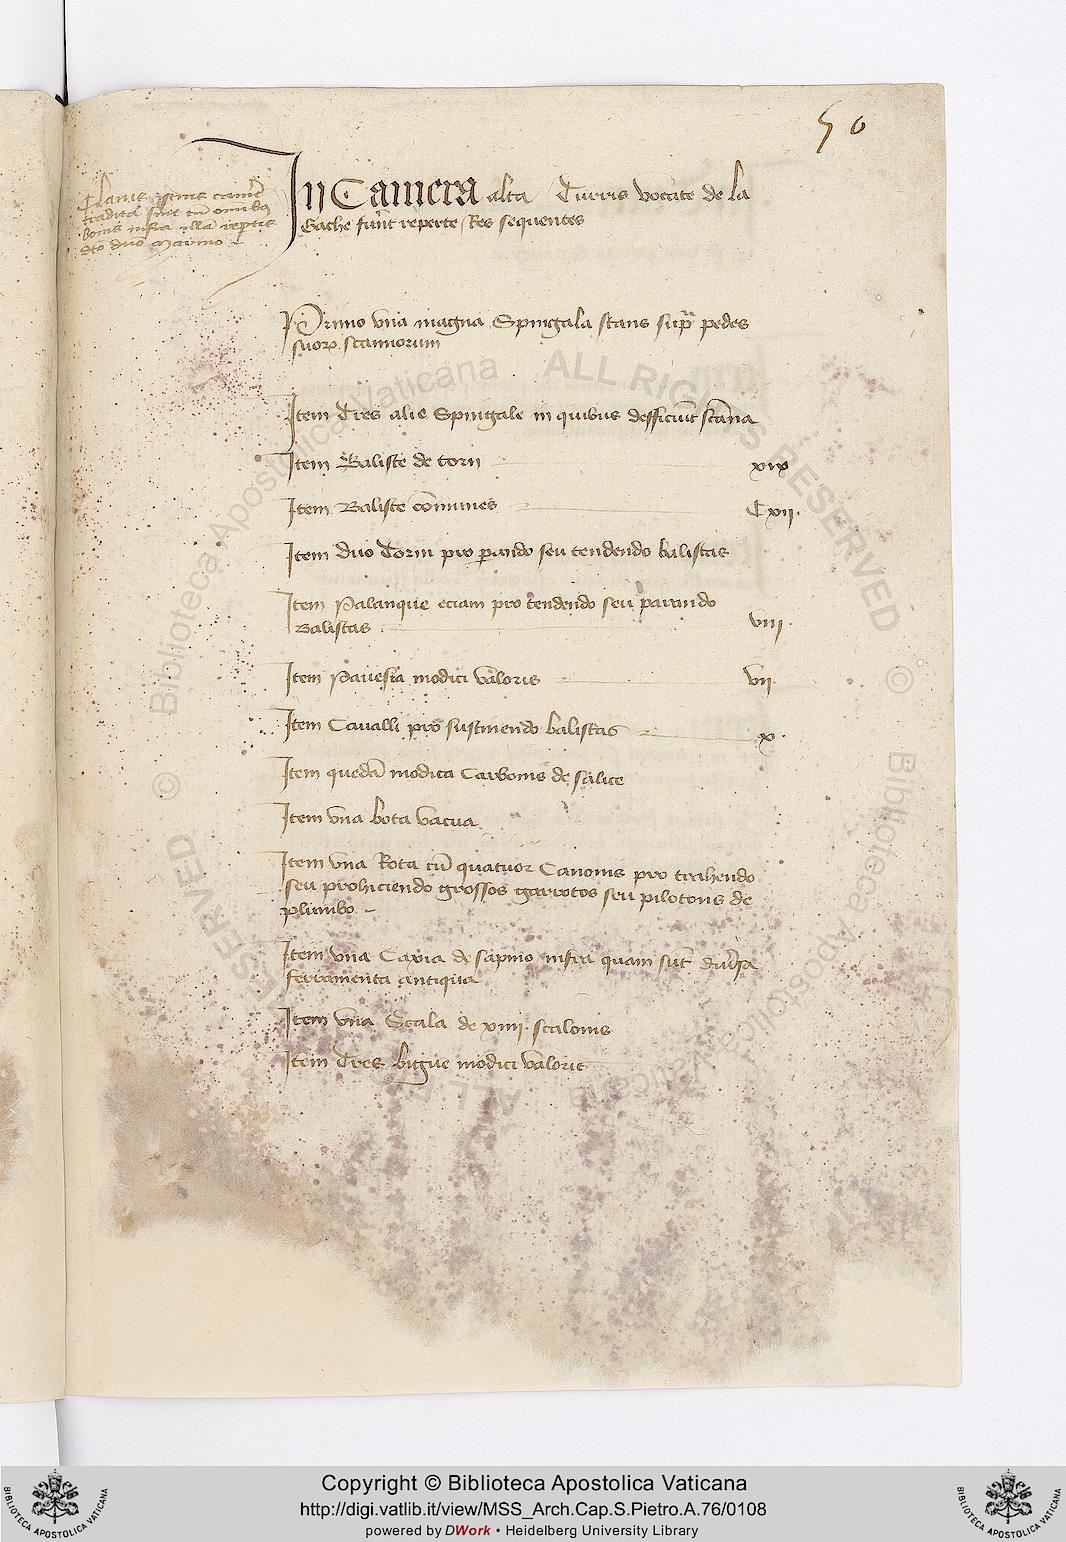 50
Clavis istius camere
tradita fuit cum omnibus
bonis infra illa repertis
dicto duo
In Camera alta Turris vocate de la
Gache fuerunt reperte Res sequentes
Primo vna magna Spingala stans supra pedes
suorum scannorum
Item Tres alie Spingale in quibus defficiunt scanna
Item Baliste de torn xix
Item Baliste communes Cxii.
Item duo Torni pro parando seu tendendo balistas
Item Palanque eciam pro tendendo seu parando
Balistas viii.
Item Pavesia modici valoris vii
Item Cavalli pro sustinendo balistas x.
Item quedam modica Carbonis de salice
Item vna bota vacua
Item vna Rota cum quatuor Canonis pro trahendo
seu prohiciendo grossos garrotos seu pilotons de
plumbo
Item vna Caxia de sapino infra quam sunt diversa
ferramenta antiqua
Item vna Scala de xiiii. scalonis
Item Tres bigue modici valoris
© Biblioteca Apostolica Vaticana ALL RIGHTS RESERVED
© Biblioteca Apostolica Vaticana ALL RIGHTS RESERVED
Copyright © Biblioteca Apostolica Vaticana
http://digi.vatlib.it/view/MSS_Arch.Cap.S.Pietro.A.76/0108
powered by DWork • Heidelberg University Library
BIBLIOTECA APOSTOLICA VATICANA
BIBLIOTECA APOSTOLICA VATICANA